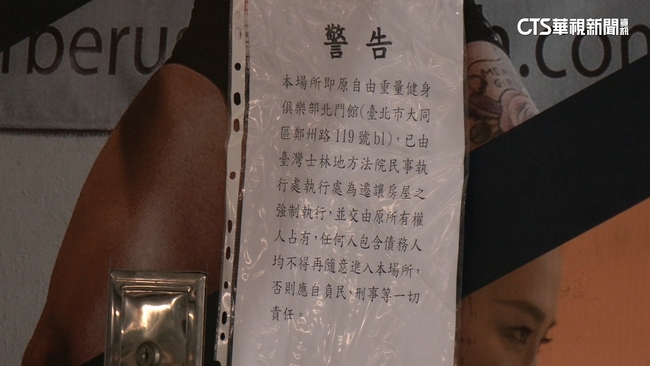 CTS華視新聞資訊
警告
本場所即原自由重量健身
俱樂部北門館(臺北市大同
區鄭州路119號b1),已由
臺灣士林地方法院民事執
行處執行處為遷讓房屋之
強制執行,並交由原所有權
人占有,任何人包含債務人
均不得再隨意進入本場所,
否則應自負民、刑事等一切
責任。